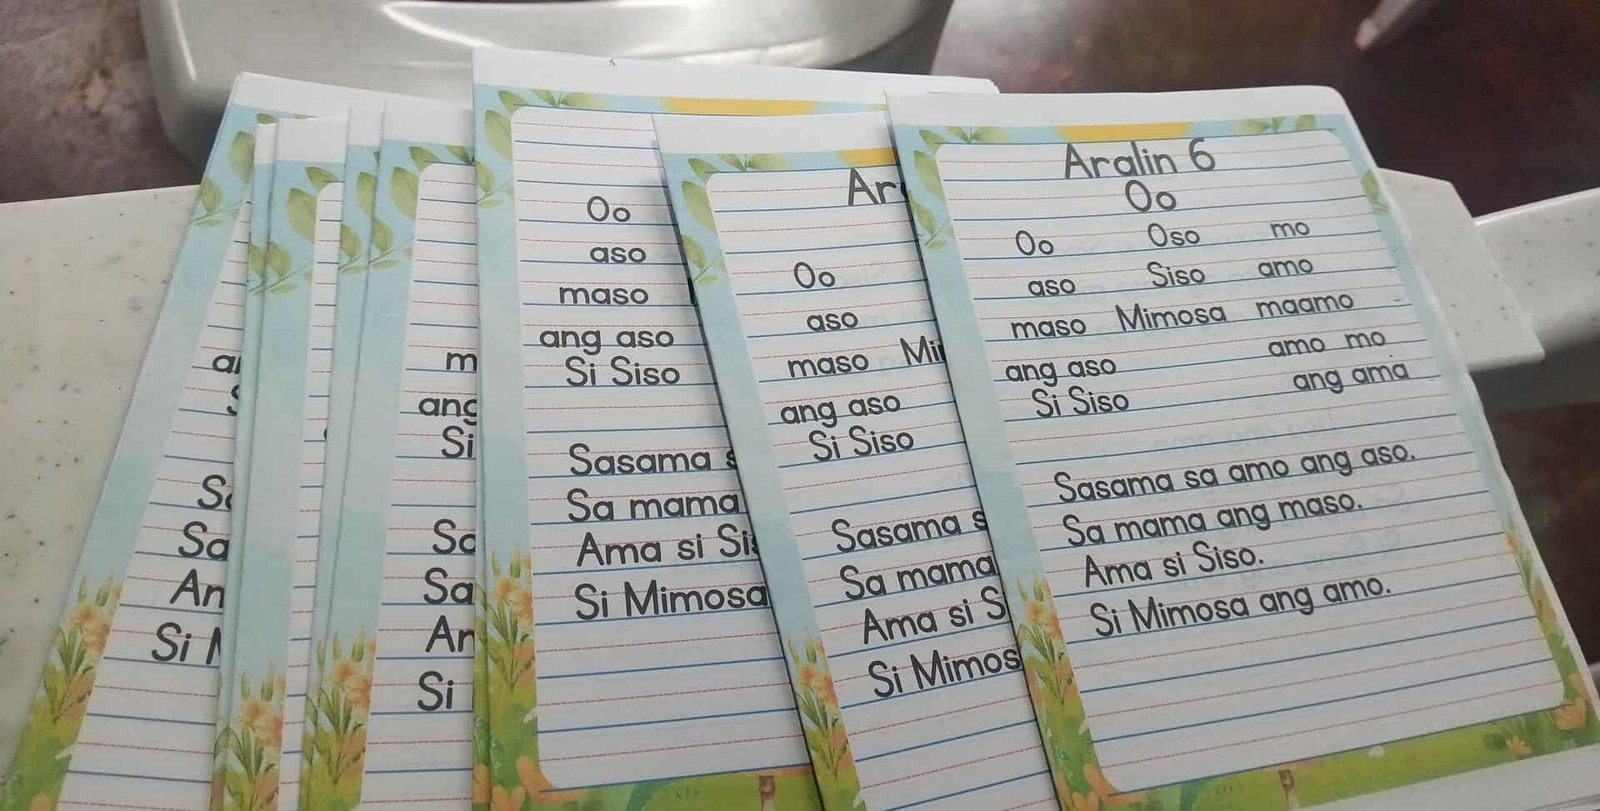 Aralin 6
Oo
Oo Oso mo
aso Siso amo
maso Mimosa maamo
ang aso amo mo
Si Siso ang ama
Sasama sa amo ang aso.
Sa mama ang maso.
Ama si Siso.
Si Mimosa ang amo.
Oo
aso
maso
ang aso
Si Siso
Sasama
Sa mama
Ama si
Si Mimosa
Oo
aso
maso
ang aso
Si Siso
Sasama
Sa mama
Ama si
Si
ang
Si
Sa
Si
Sa
Si